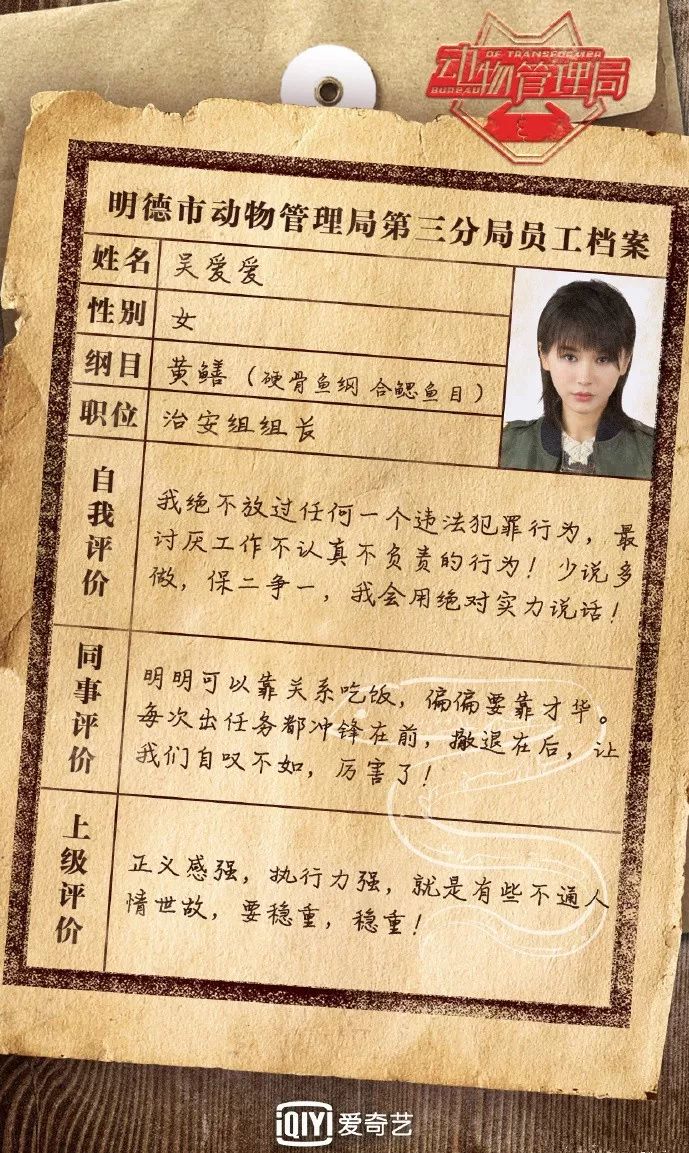 OF TRANSFORMER
动物管理局
BUREAU
明德市动物管理局第三分局员工档案
姓名 吴爱爱
性别 女
纲目 黄鳝（硬骨鱼纲 合鳃鱼目）
职位 治安组组长
自我评价
我绝不放过任何一个违法犯罪行为，最
讨厌工作不认真不负责的行为！少说多
做，保二争一，我会用绝对实力说话！
同事评价
明明可以靠关系吃饭，偏偏要靠才华。
每次出任务都冲锋在前，撤退在后，让
我们自叹不如，厉害了！
上级评价
正义感强，执行力强，就是有些不通人
情世故，要稳重，稳重！
iQIYI 爱奇艺